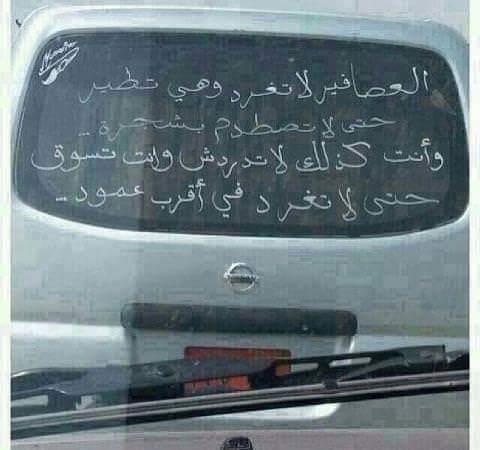 العصافير لا تغرد وهي تطير
حتى لا تصطدم بشجرة ..
وأنت كذلك لا تدردش وانت تسوق
حتى لا تغرد في أقرب عمود ...